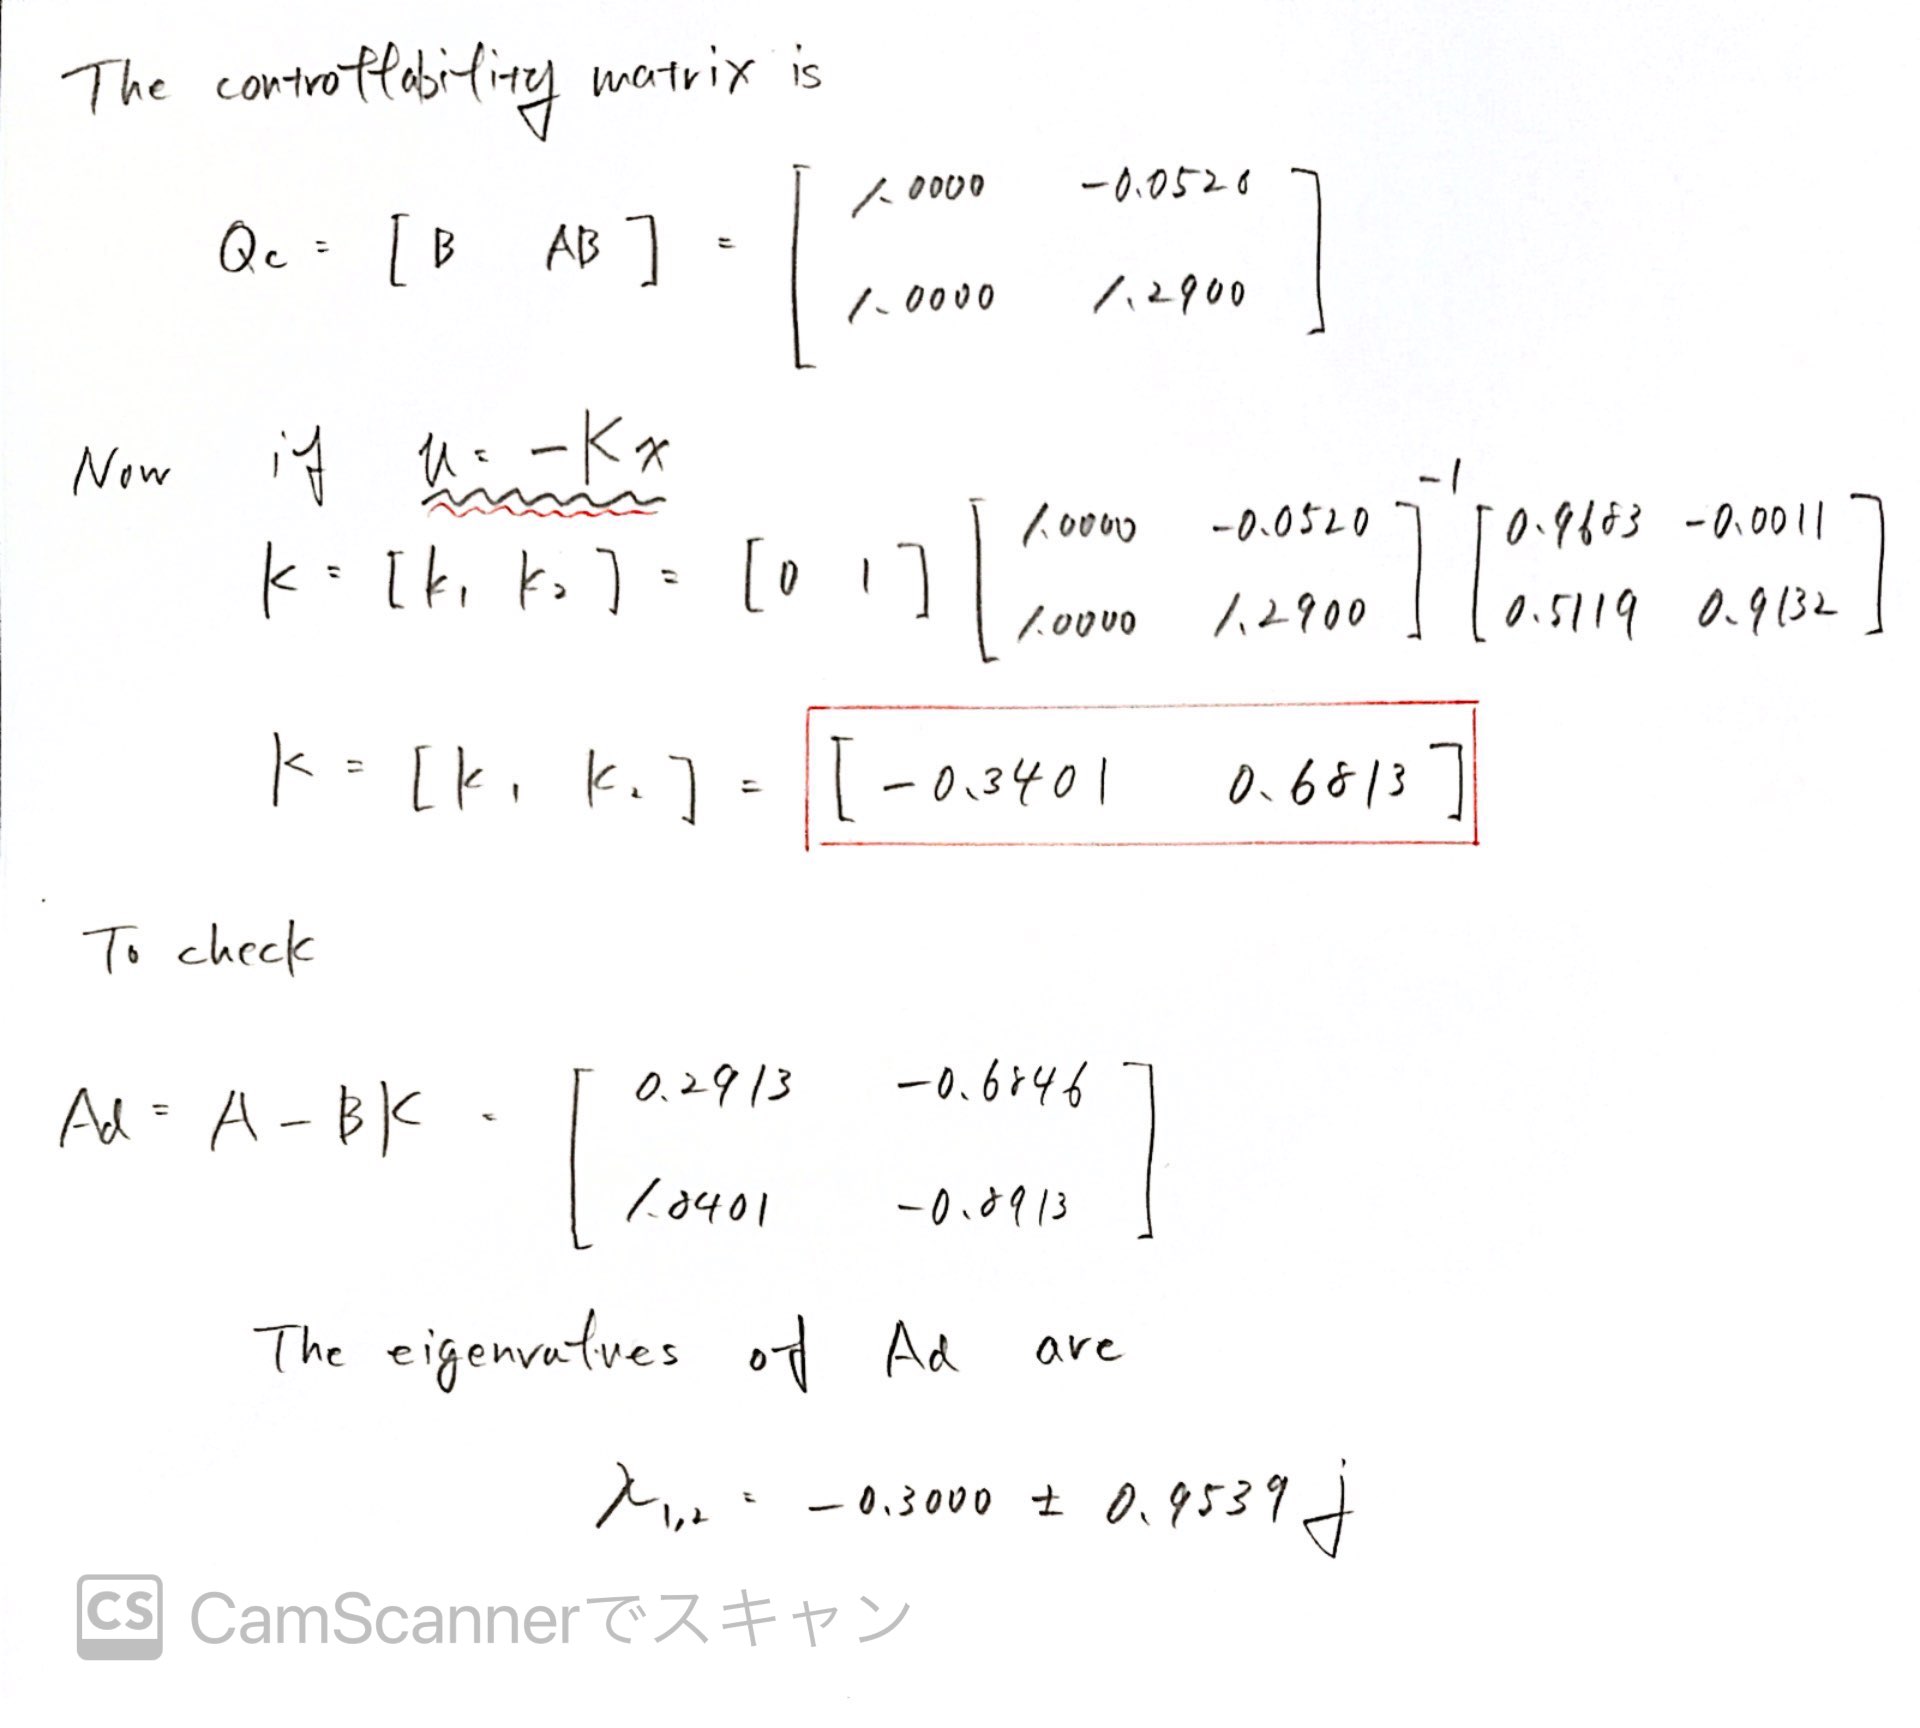 The controllability matrix is
Qc = [ B AB ] = [ 1.0000 -0.0520
1.0000 1.2900 ]
Now if u = -Kx
K = [ k1 k2 ] = [ 0 1 ] [ 1.0000 -0.0520
1.0000 1.2900 ]^-1 [ 0.9683 -0.0011
0.5119 0.9132 ]
K = [ k1 k2 ] = [ -0.3401 0.6813 ]
To check
Ad = A - BK = [ 0.2913 -0.6846
1.8401 -0.8913 ]
The eigenvalues of Ad are
λ1,2 = -0.3000 ± 0.9539 j
CS CamScannerでスキャン